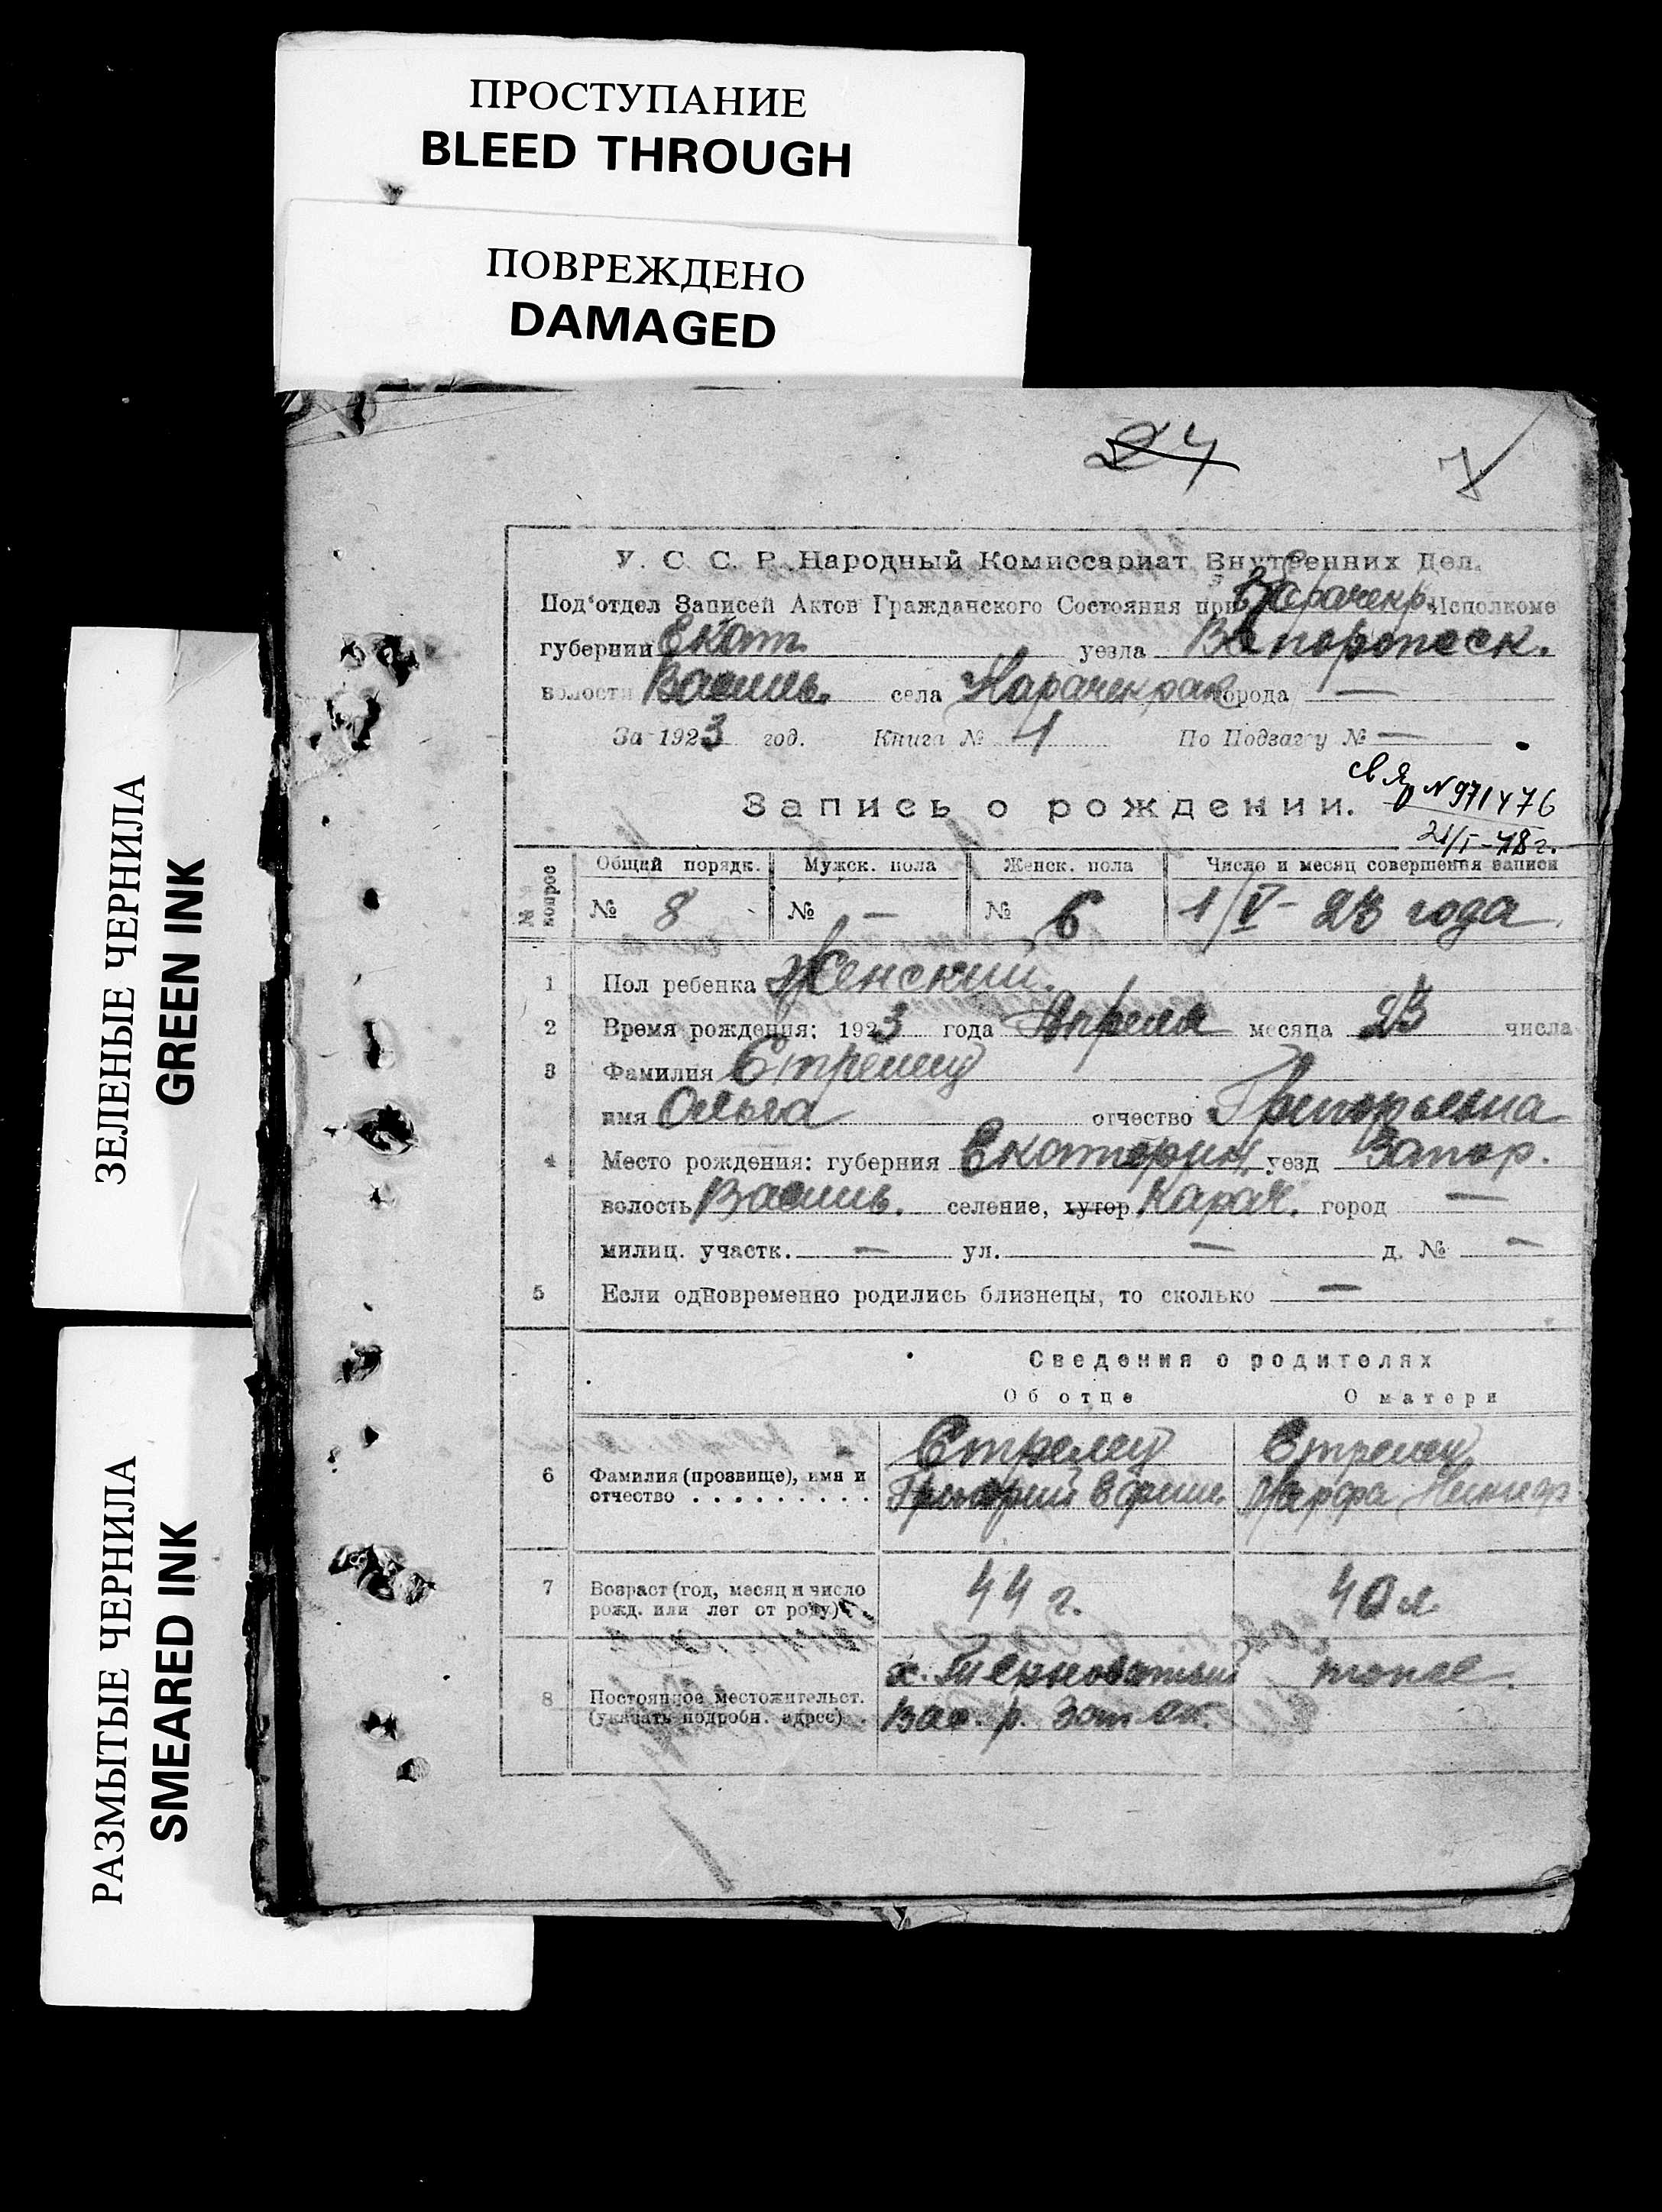 ПРОСТУПАНИЕ
BLEED THROUGH
ПОВРЕЖДЕНО
DAMAGED
ЗЕЛЕНЫЕ ЧЕРНИЛА
GREEN INK
РАЗМЫТЫЕ ЧЕРНИЛА
SMEARED INK
24
7
У. С. С. Р. Народный Комиссариат Внутренних Дел.
Под'отдел Записей Актов Гражданского Состояния при Исполкоме
губернии Екат. уезда
волости Василь. села города —
За 1923 год. Книга № 1 По Подзагу № —
№ 971476
21/I-78г.
Запись о рождении.
№№ вопрос
Общий порядк. Мужск. пола Женск. пола Число и месяц совершения записи
№ 8 № — № 6 1/V- 23 года
1 Пол ребенка Женский.
2 Время рождения: 1923 года Апреля месяца 23 числа
3 Фамилия Стрелец
имя Ольга отчество Григорьевна
4 Место рождения: губерния Екатерин. уезд Запор.
волость Василь. селение, хутор Карач. город —
милиц. участк. — ул. — д. № —
5 Если одновременно родились близнецы, то сколько —
Сведения о родителях
Об отце О матери
Стрелец Стрелец
6 Фамилия (прозвище), имя и отчество Григорий Марфа
7 Возраст (год, месяц и число рожд. или лет от роду) 44 г. 40 л.
х. Терноватый тоже.
8 Постоянное местожительст. (указать подробн. адрес) Вас. р.